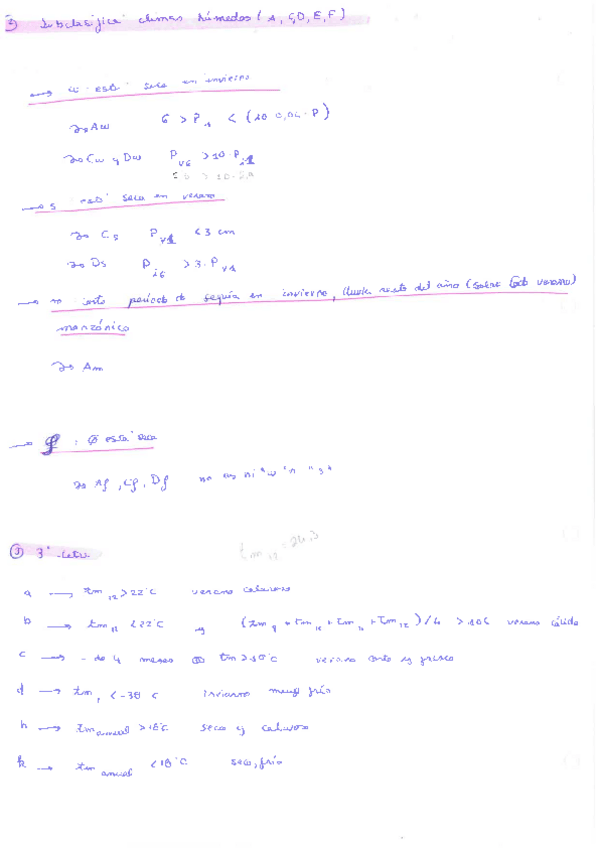 3) Subclasifica climas húmedos (A, C, D, E, F)
→ w está seca en invierno
→ Aw 6 > P1 < (10 - 0,04 · P)
→ Cw y Dw PV6 > 10 · Pi1
→ s está seca en verano
→ Cs PV1 < 3 cm
→ Ds Pi6 > 3 · PV1
→ m corto periodo de sequía en invierno, llueve resto del año (sobre todo verano)
monzónico
→ Am
→ f : Ø está seca
→ Af, Cf, Df no es ni "w" ni "s"
3ª letra tm12 = 24,3
a → tm12 > 22°C verano caluroso
b → tm12 < 22°C y (tm9 + tm10 + tm11 + tm12) / 4 > 10°C verano cálido
c → - de 4 meses tm > 10°C verano corto y fresco
d → tm1 < -38°C invierno muy frío
h → tm anual > 18°C seco y caluroso
k → tm anual < 18°C seco, frío